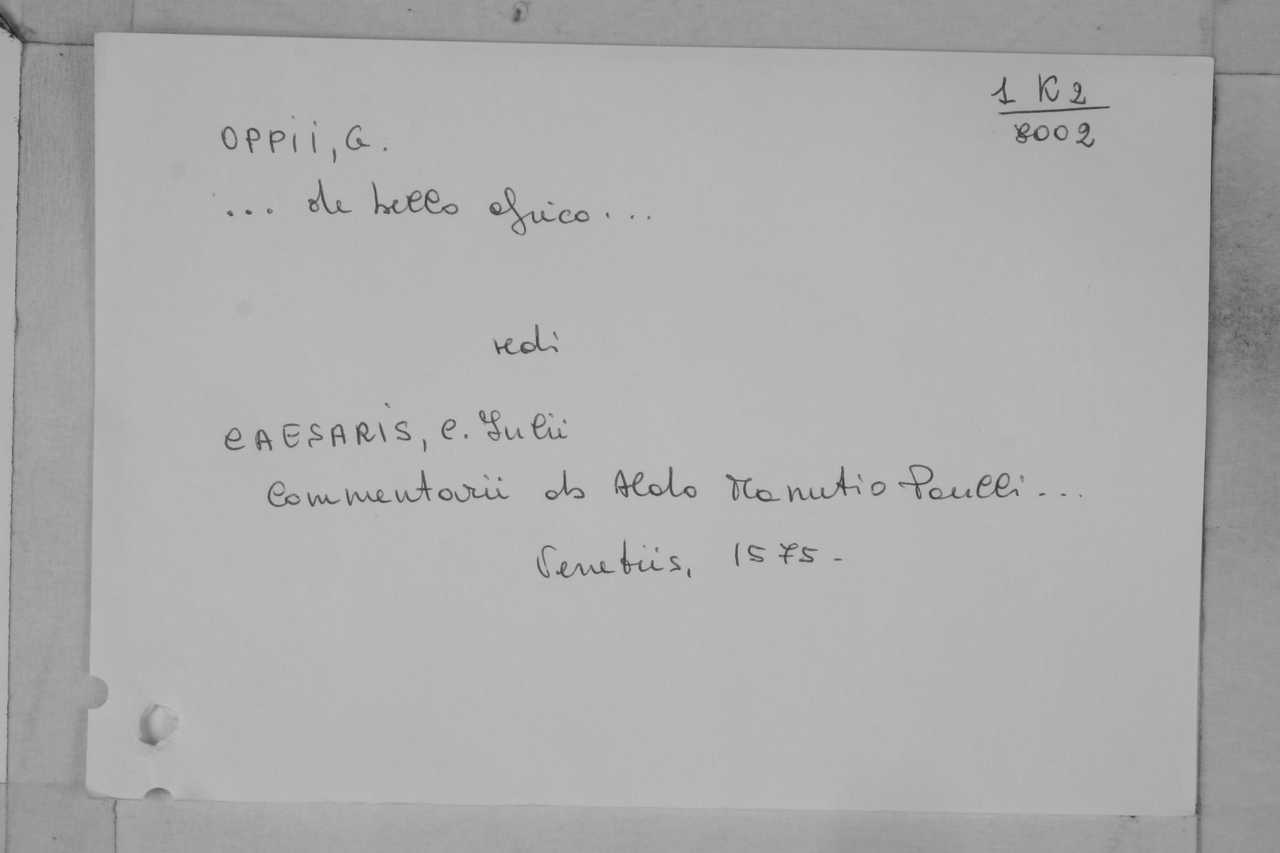 1 K 2
8002
OPPII, G.
... de bello africo...
vedi
CAESARIS, C. Julii
Commentarii ab Aldo Manutio Paulli...
Venetiis, 1575.